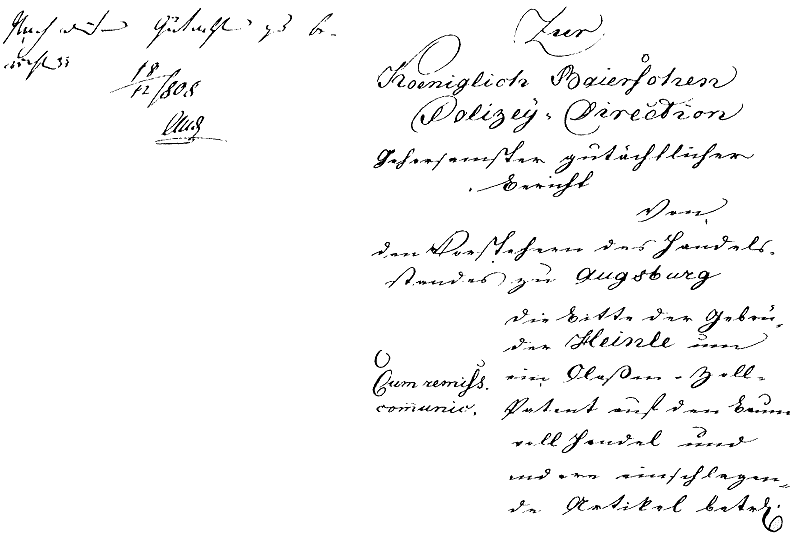 Nach dem Gutacht zu be-
richten
18/12 808
Zur
Koeniglich Baierschen
Polizeÿ-Direction
Gehorsamster gutächtlicher
Bericht
Von
den Vorstehern des Handels-
standes zu Augsburg
die Bitte der Gebrü-
der Heinle um
ein Claßen-Zoll-
Patent auf den Baum
woll Handel und
andere einschlagen-
de Artikel betrf.
Cum remiss.
com̅unic.